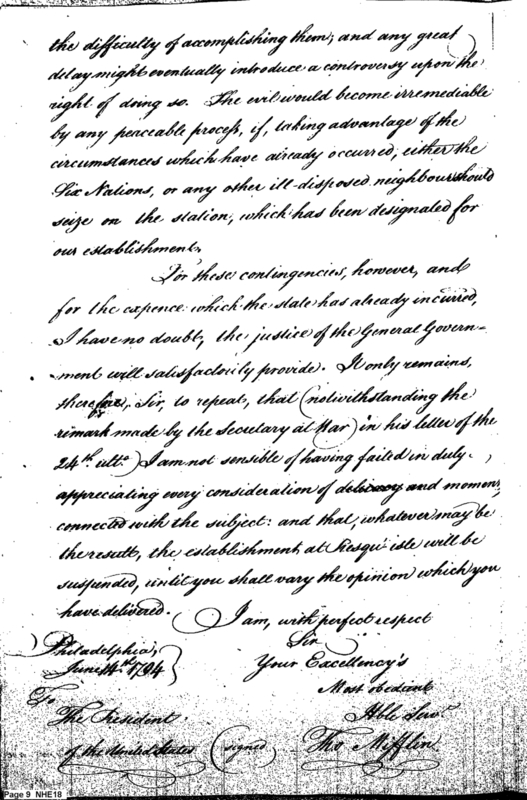 the difficulty of accomplishing them; and any great
delay might eventually introduce a controversy upon the
right of doing so. The evil would become irremediable
by any peaceable process, if, taking advantage of the
circumstances which have already occurred, either the
Six Nations, or any other ill-disposed neighbour should
seize on the station, which has been designated for
our establishment.
For these contingencies, however, and
for the expence which the state has already incurred,
I have no doubt, the justice of the General Govern-
ment will satisfactorily provide. It only remains,
therefore, Sir, to repeat, that (notwithstanding the
remark made by the Secretary at War) in his letter of the
24th. ulto.) I am not sensible of having failed in duly
appreciating every consideration of delicacy and moment,
connected with the subject: and that, whatever may be
the result, the establishment at Presqu'isle will be
suspended, until you shall vary the opinion which you
have delivered. I am, with perfect respect
Sir
Philadelphia,
June 14th. 1794
Your Excellency's
Most obedient
Hble Servt.
To
The President
of the United States
(signed) Tho Mifflin
Page 9 NHE18